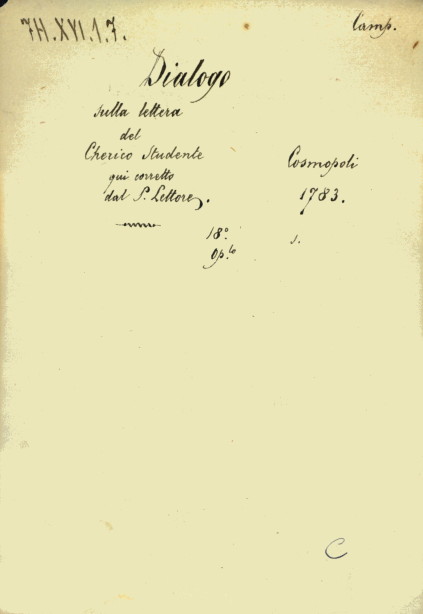 7H.XVI.1.7.
Camp.
Dialogo
sulla lettera
del
Cherico Studente
qui corretto
dal P. Lettore.
Cosmopoli
1783.
18º
Op.lo
s.
C